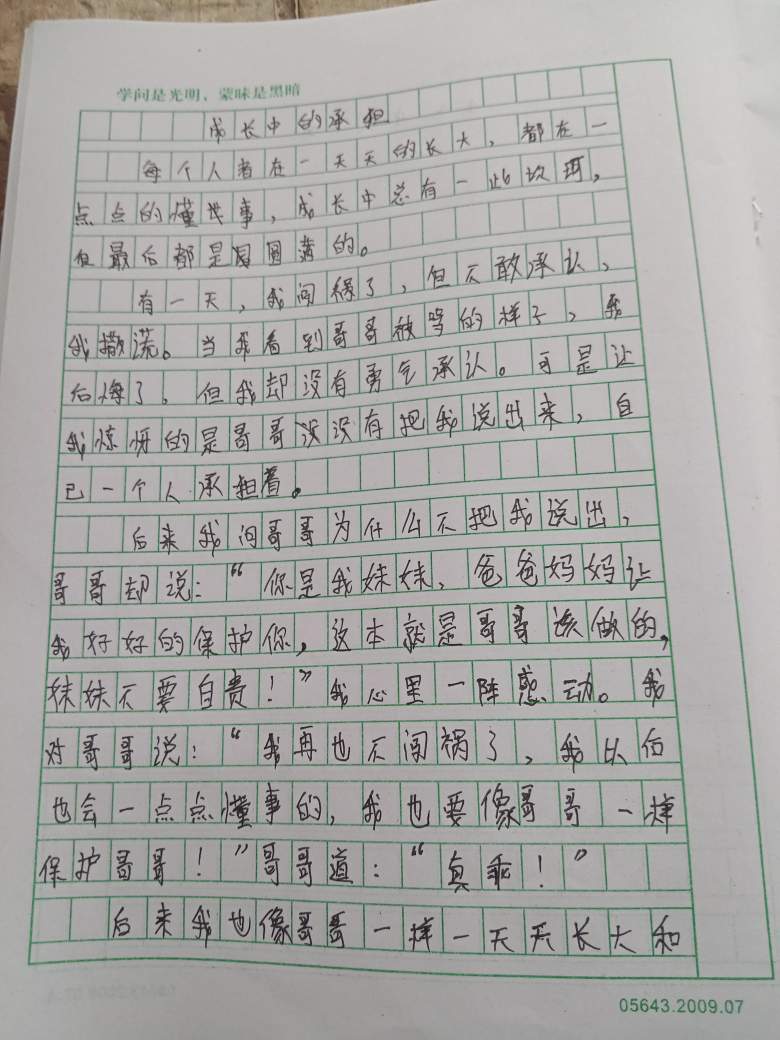 学问是光明、蒙昧是黑暗
成长中的承担
每个人都在一天天的长大，都在一
点点的懂事，成长中总有一些坎坷，
但最后都是圆满的。
有一天，我闯祸了，但不敢承认、
我撒谎。当我看到哥哥被骂的样子，我
后悔了、但我却没有勇气承认。可是让
我惊呀的是哥哥没有把我说出来，自
己一个人承担着。
后来我问哥哥为什么不把我说出、
哥哥却说：“你是我妹妹、爸爸妈妈让
我好好的保护你，这本就是哥哥该做的，
妹妹不要自责！”我心里一阵感动。我
对哥哥说：“我再也不闯祸了，我以后
也会一点点懂事的，我也要像哥哥一样
保护哥哥！”哥哥道：“真乖！”
后来我也像哥哥一样一天天长大和
05643.2009.07